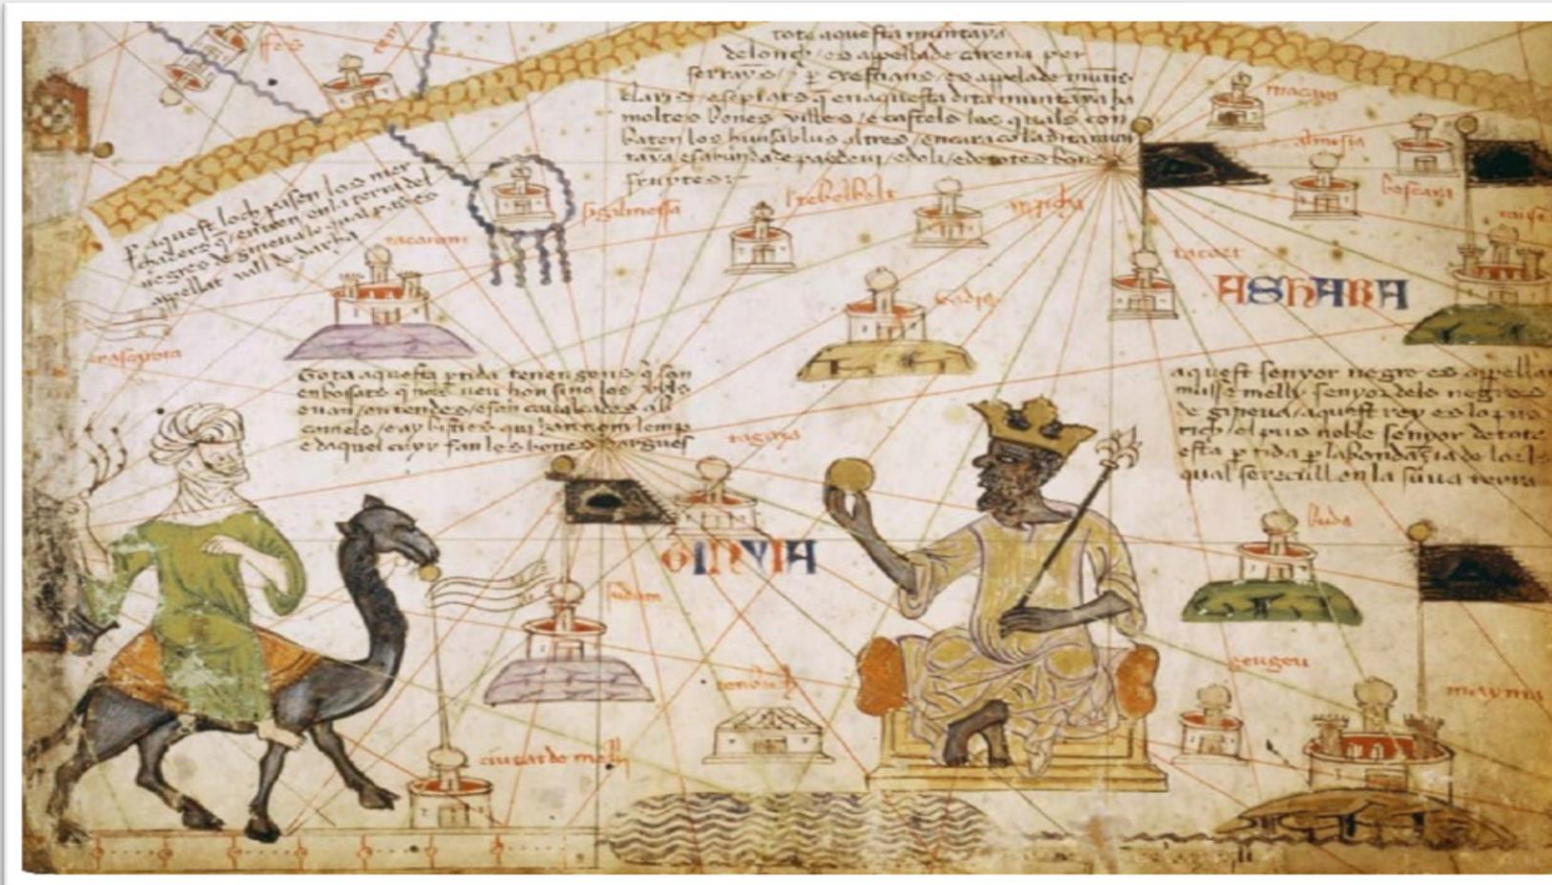 ffes
tota aquesta muntaya
de lonch / es apellade carena per
serrayns / e p crestians / es apelade muntis
claris e sepiats q en aquesta dita muntaya ha
moltes bones villes / e castels los quals con
baten los huns ab lus altres / encara co la dita mun
taya es abunda de pa e de vi / e doli / e de totes bones
fruytes :~
P aquest loch pasen los mer
chaders q entren en la terra dels
negres de gineua lo qual pas es
appellat vall de darha
sigilmessa
tacorom
tebelbelt
buda
ASHARA
Tota aquesta ptida tenen gens q son
enbossats q nols veu hom sino los uyls
e van / en tendes / e fan caualcades ab
camels / e ay bisties qui han nom lemp
e daquel cuyr fan les bones dargues
aquest senyor negre es appellat
musse melly / senyor dels negres
de gineua / aquest rey es lo pus
rich / el pus noble senyor de tota
esta ptida p labondansia de lor lo
qual se recull en la suua terra
tagaza
GINYIA
sudam
tenbuch
geugeu
mayma
ciutat de melly